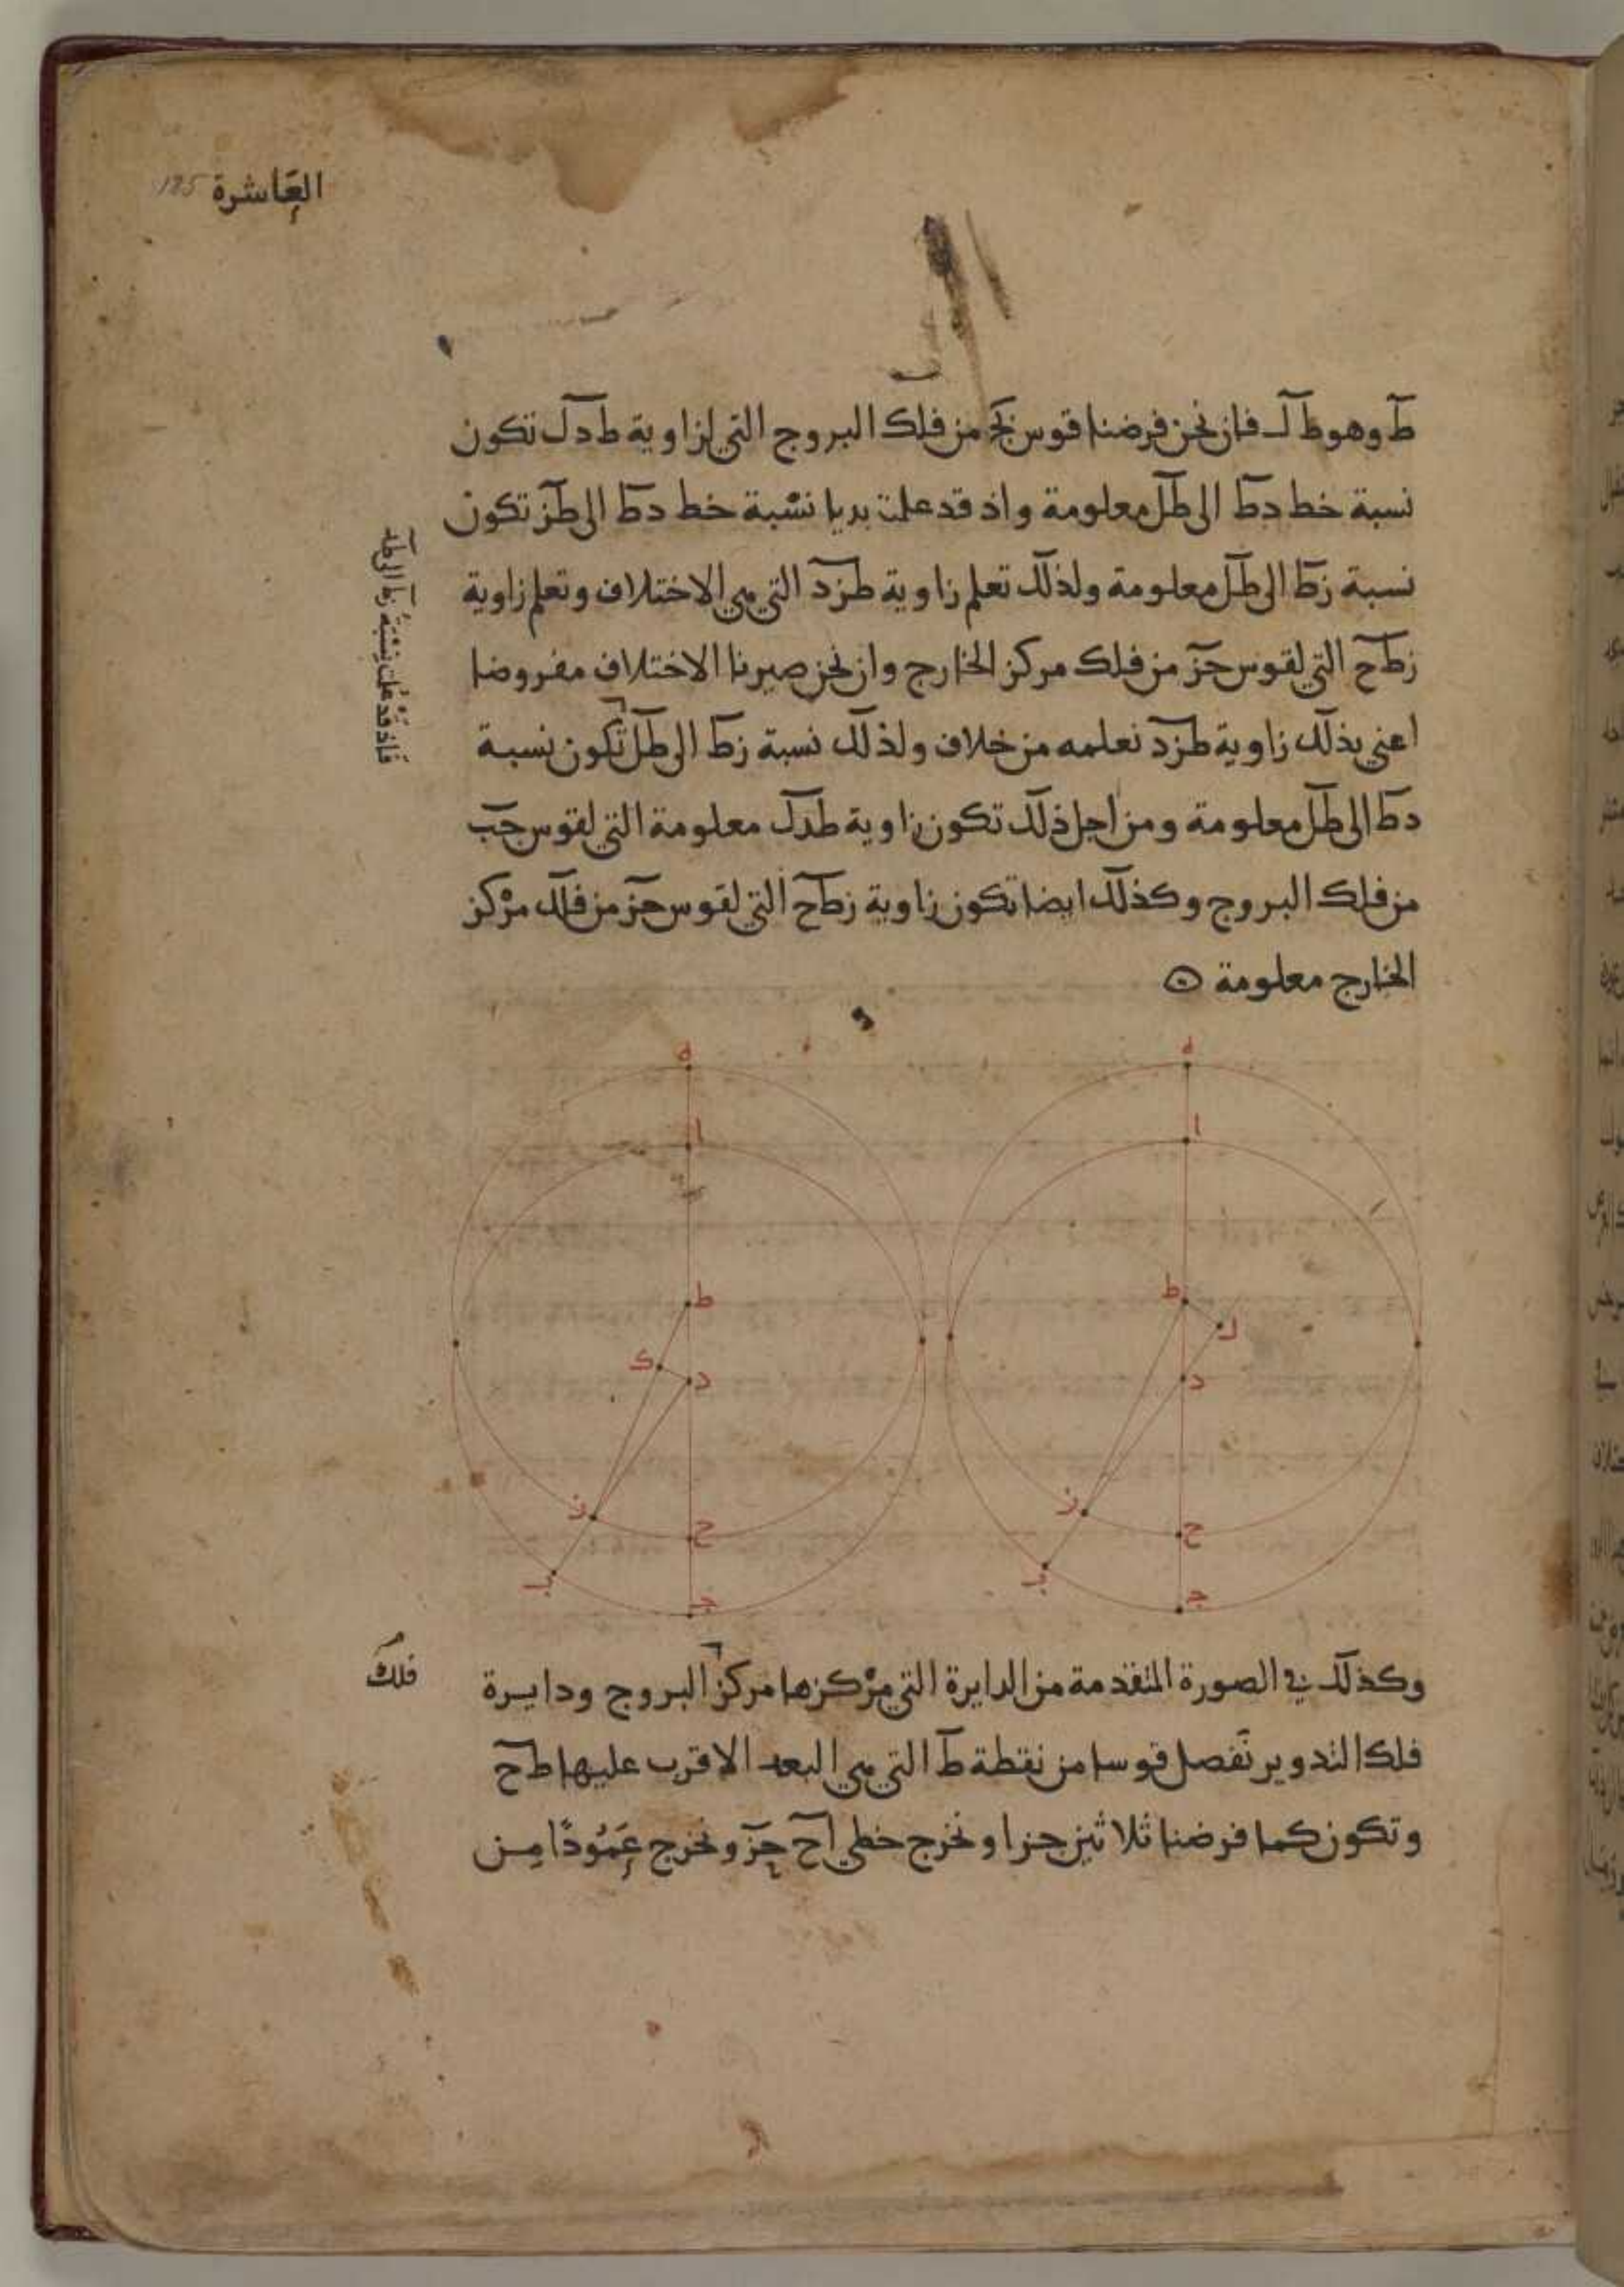 العاشرة 125
ط وهو ط ل فان نحن فرضنا قوس بج من فلك البروج التي لزاوية ط د ل تكون
نسبة خط دط الى طل معلومة واذ قد علمت بديا نسبة خط دط الى طز تكون
نسبة زط الى طل معلومة ولذلك تعلم زاوية طزد التي هي الاختلاف وتعلم زاوية
زطح التي لقوس حز من فلك مركز الخارج وان نحن صيرنا الاختلاف مفروضا
اعني بذلك زاوية طزد نعلمه من خلاف ولذلك نسبة زط الى طل تكون نسبة
دط الى طل معلومة ومن اجل ذلك تكون زاوية طدل معلومة التي لقوس جب
من فلك البروج وكذلك ايضا تكون زاوية زطح التي لقوس حز من فلك مركز
الخارج معلومة
فاذ قد علمت نسبة زط الى طد
ه
ا
ط
ل
د
ز
ح
ب
ج
ه
ا
ط
ك
د
ز
ح
ب
ج
وكذلك في الصورة المتقدمة من الدايرة التي مركزها مركز البروج ودايرة
فلك
فلك التدوير تفصل قوسا من نقطة ط التي هي البعد الاقرب عليها طح
وتكون كما فرضنا ثلاثين جزا ونخرج خطي اح حز ونخرج عَمُودًا مِن